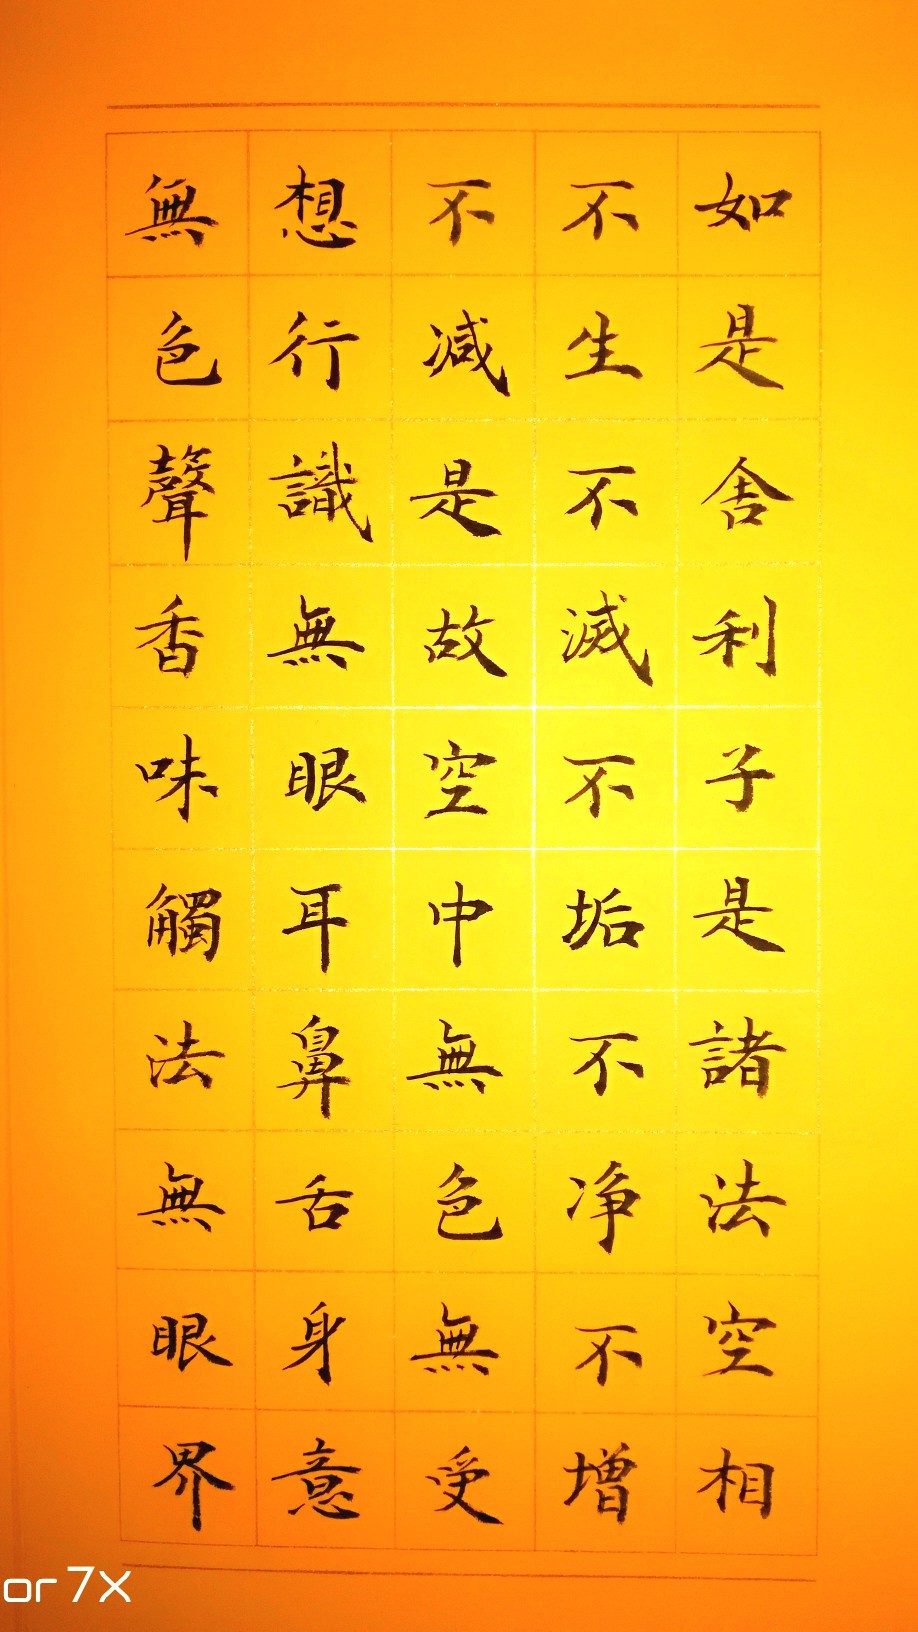 如是舍利子是諸法空相
不生不滅不垢不净不增
不減是故空中無色無受
想行識無眼耳鼻舌身意
無色聲香味觸法無眼界
or 7X